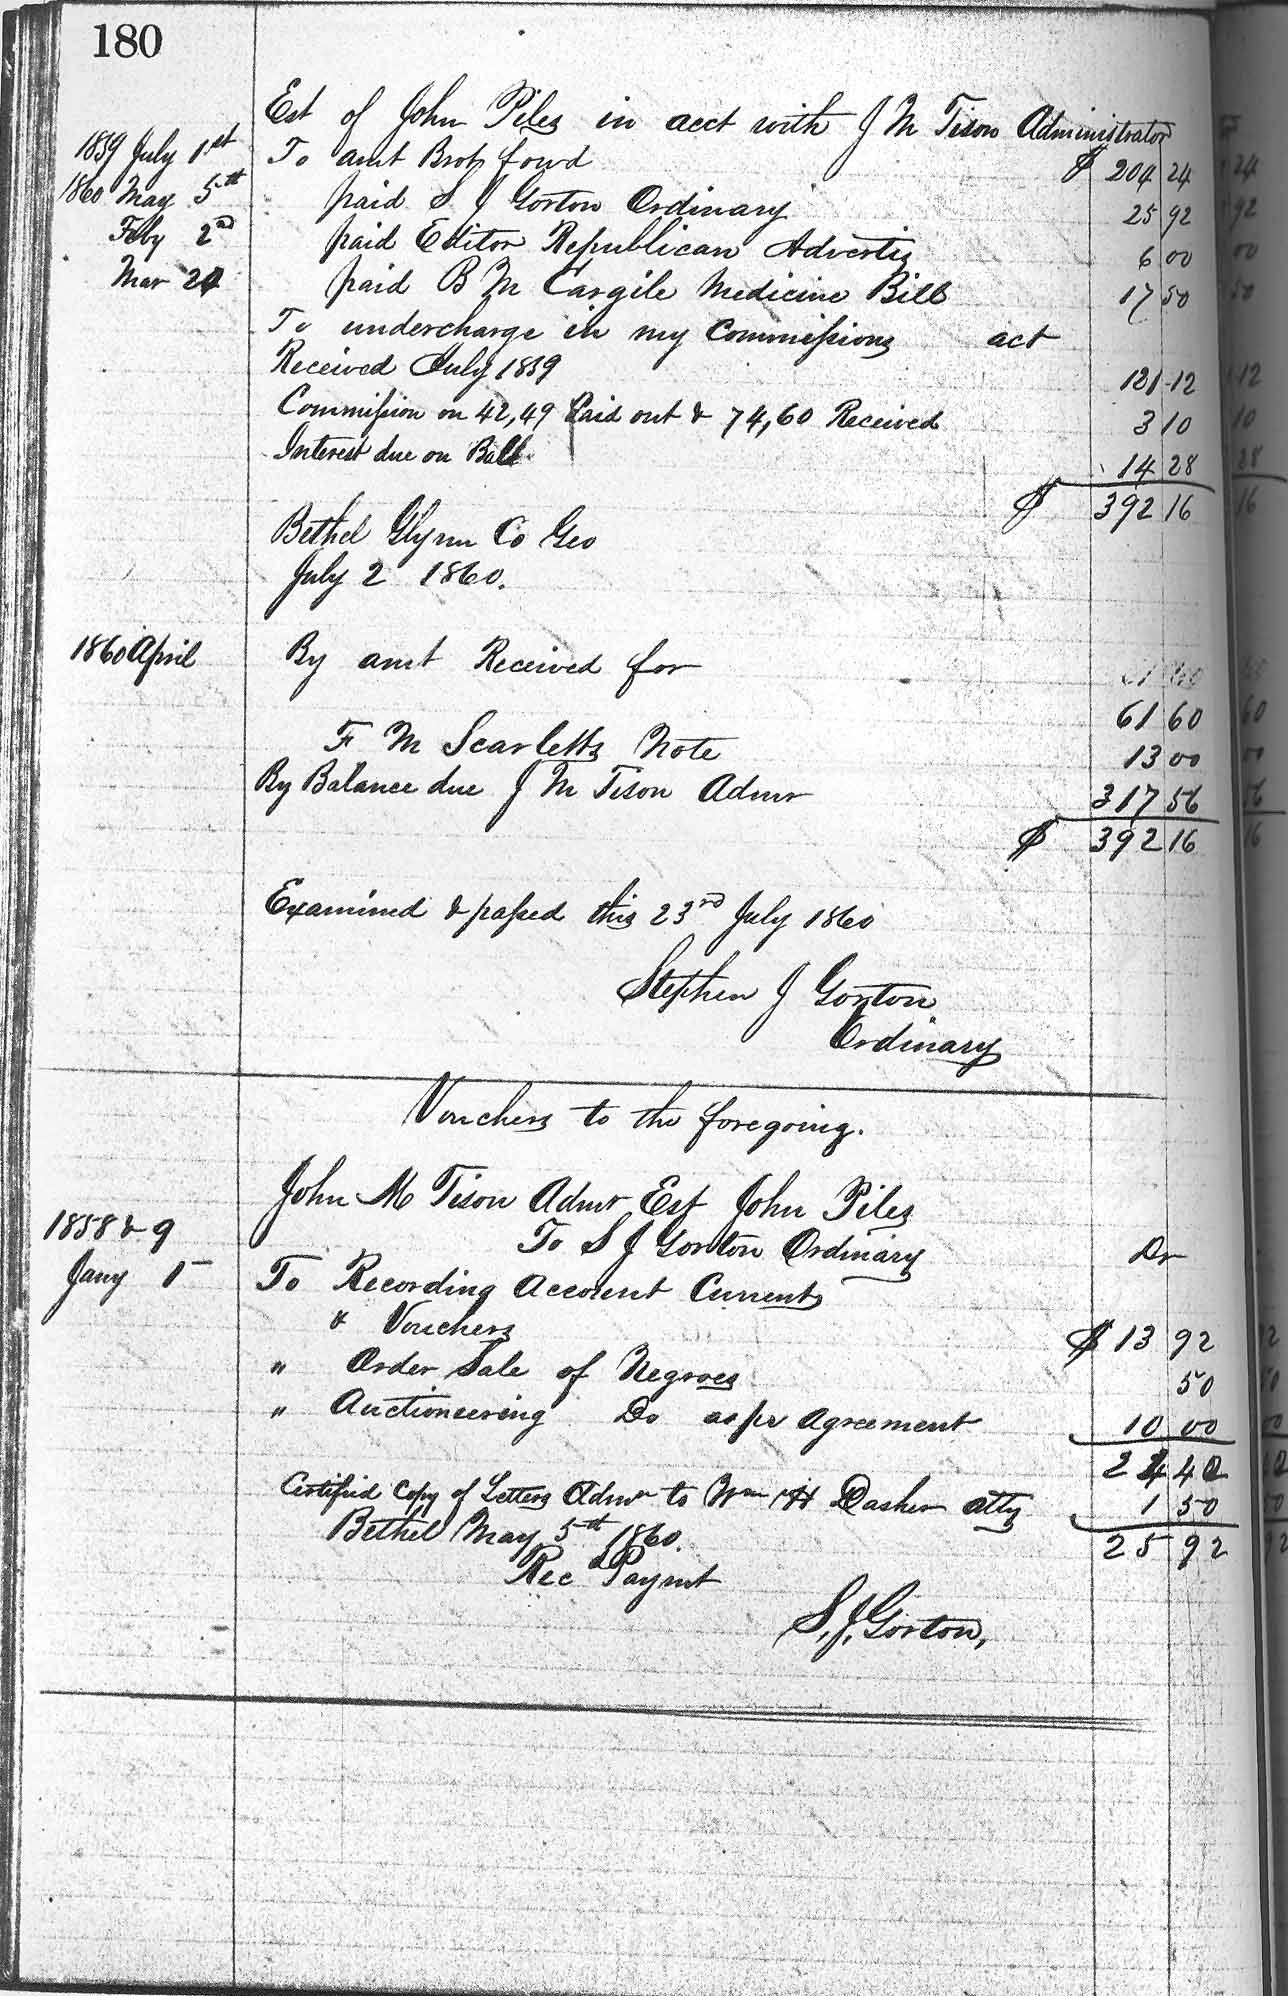 180
Est of John Piles in acct with J M Tison Administrator
1859 July 1st To amt Brot forwd $ 204 24
1860 May 5th paid S J Gorton Ordinary 25 92
Feby 2nd paid Editor Republican Advertis 6 00
Mar 24 paid B M Cargile Medicine Bill 17 50
To undercharge in my Commissions act
Received July 1859 121 12
Commission on 42,49 Paid out & 74,60 Received 3 10
Interest due on Ball 14 28
$ 392 16
Bethel Glynn Co Geo
July 2 1860.
1860 April By amt Received for
61 60
F M Scarletts Note 13 00
By Balance due J M Tison Admr 317 56
$ 392 16
Examined & passed this 23rd July 1860
Stephen J Gorton
Ordinary
Vouchers to the foregoing.
John M Tison Admr Est John Piles
1858 & 9 To S J Gorton Ordinary Dr
Jany 1 To Recording Account Current
& Vouchers $ 13 92
" Order Sale of Negroes 50
" Auctioneering Do as pr Agreement 10 00
24 42
Certified Copy of Letters Admn to Wm H Dasher atty 1 50
Bethel May 5th 1860. 25 92
Recd Paymt
S. J. Gorton,